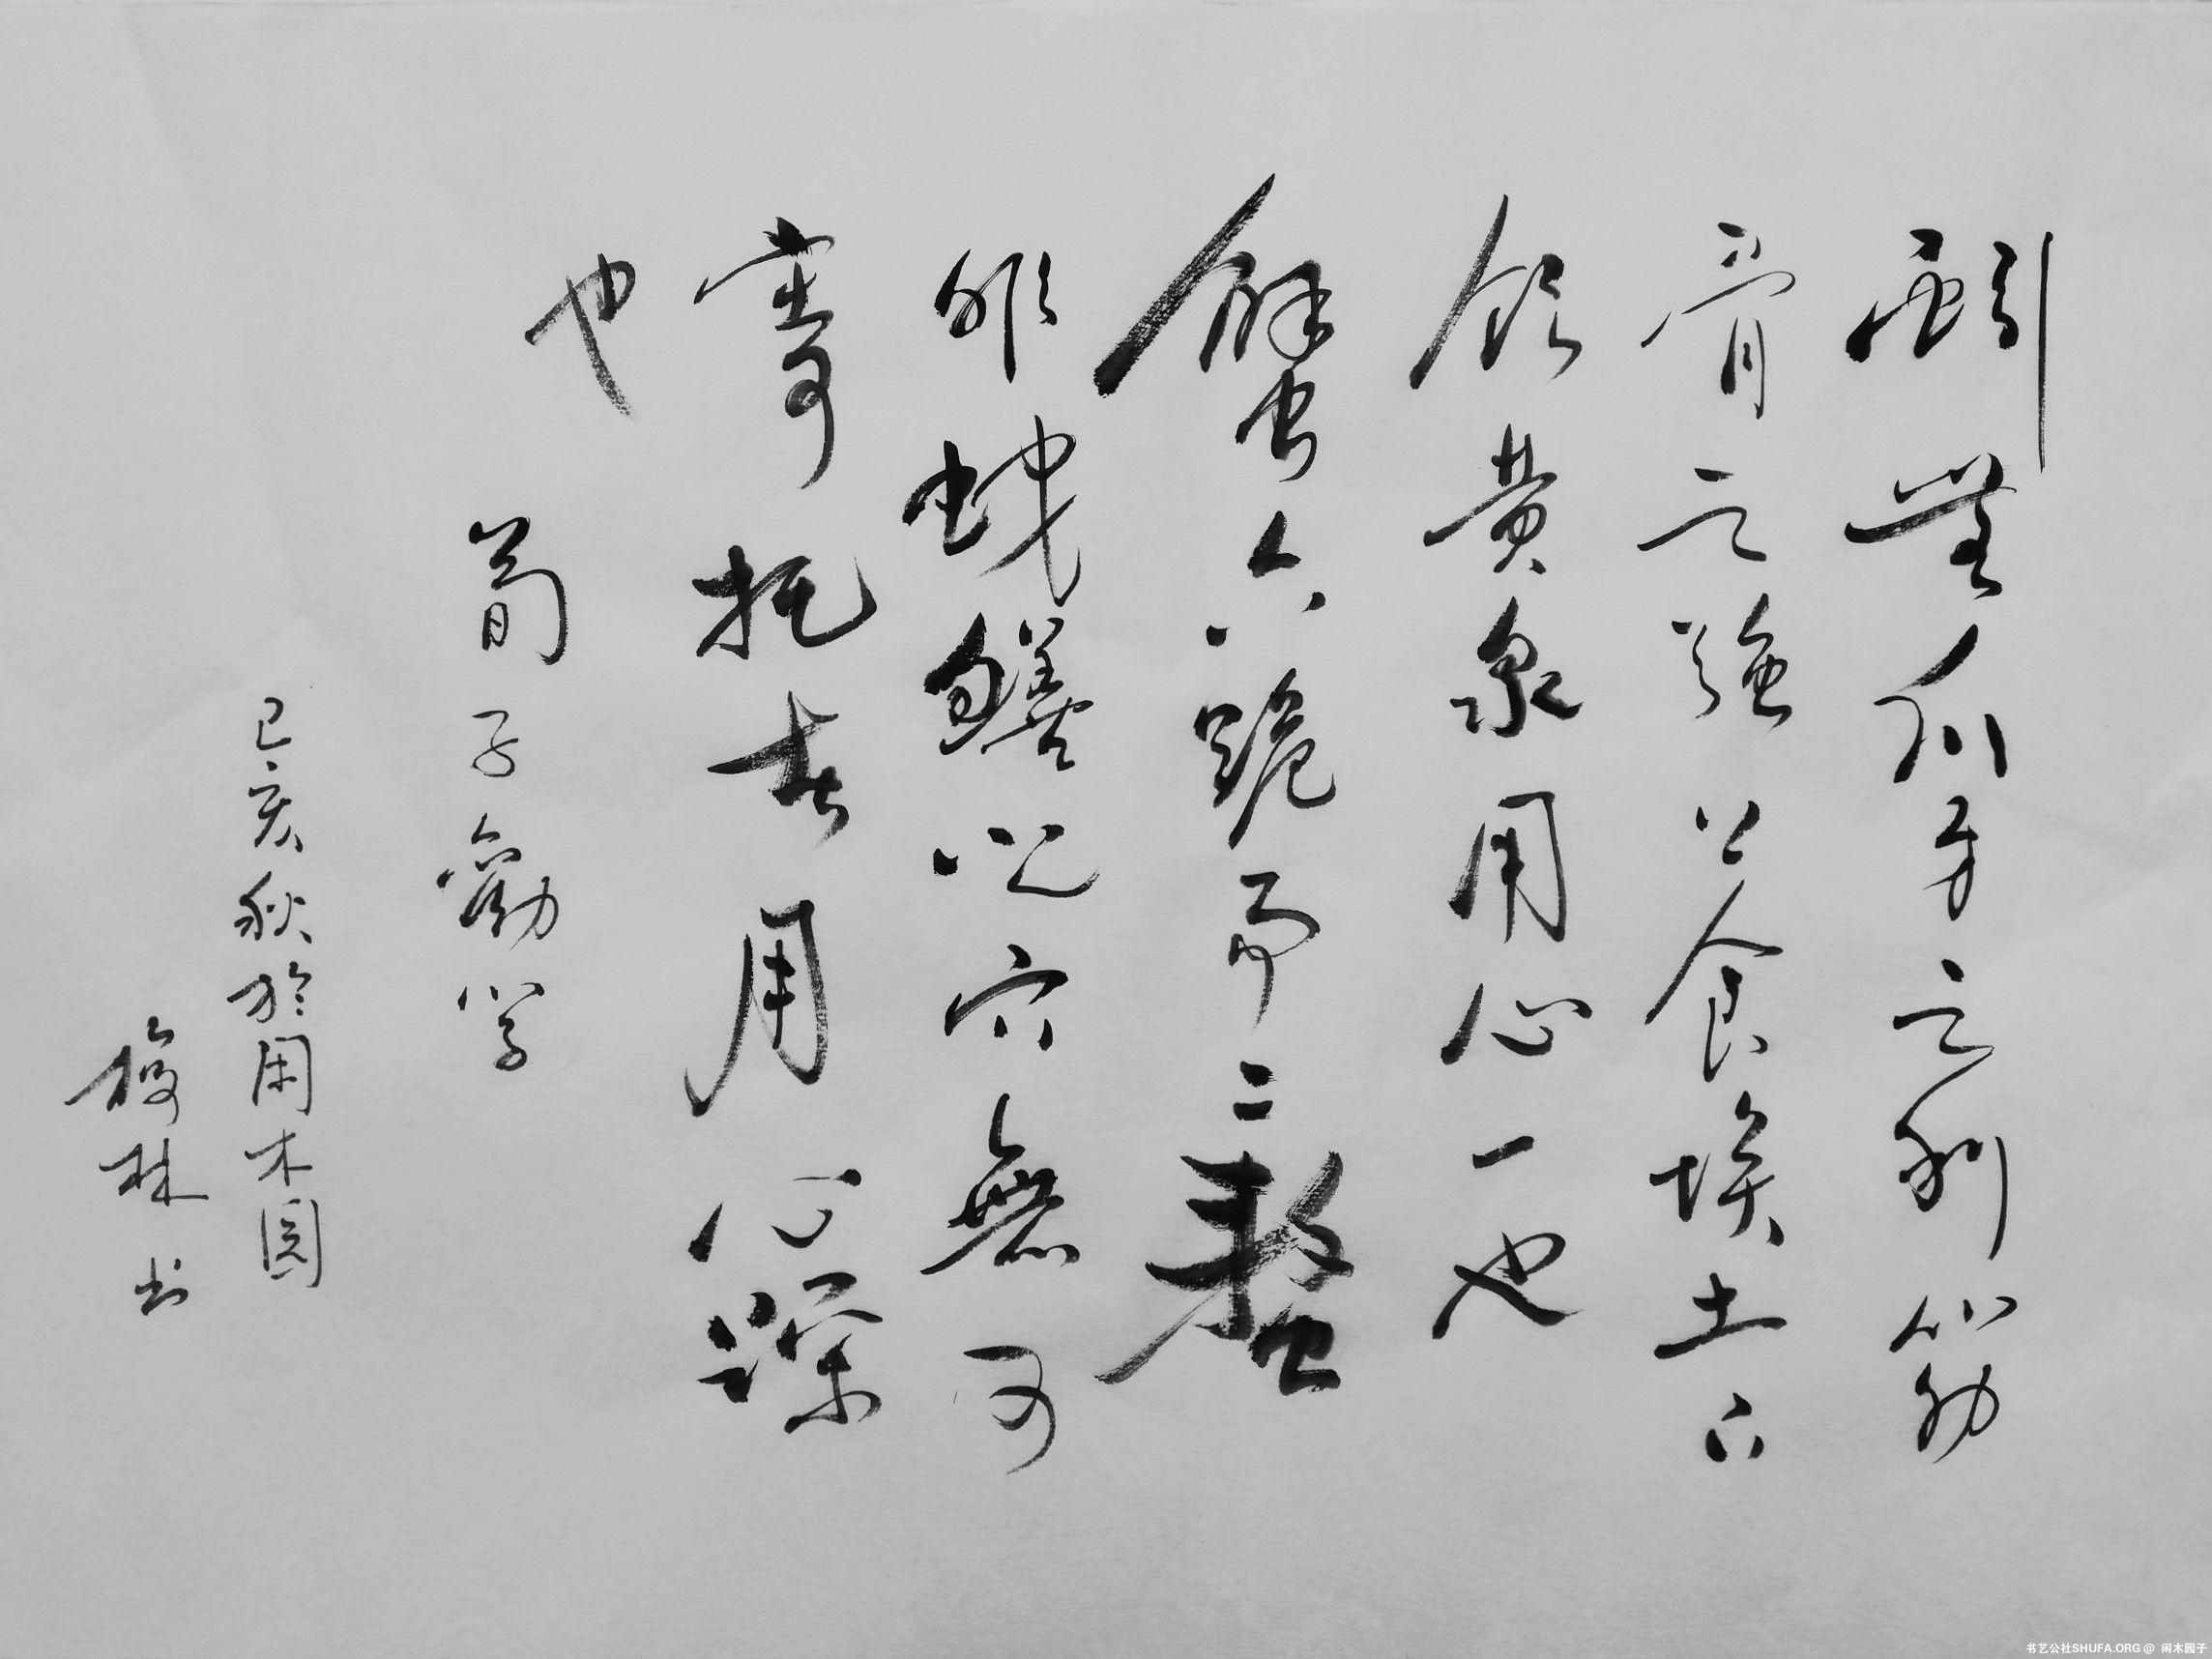 蚓無爪牙之利筋
骨之強上食埃土下
飲黄泉用心一也
蟹六跪而二螯
非蛇蟮之穴無可
寄托者用心躁
也
荀子勸學
己亥秋於闲木園
梅林书
书艺公社SHUFA.ORG @ 闲木园子